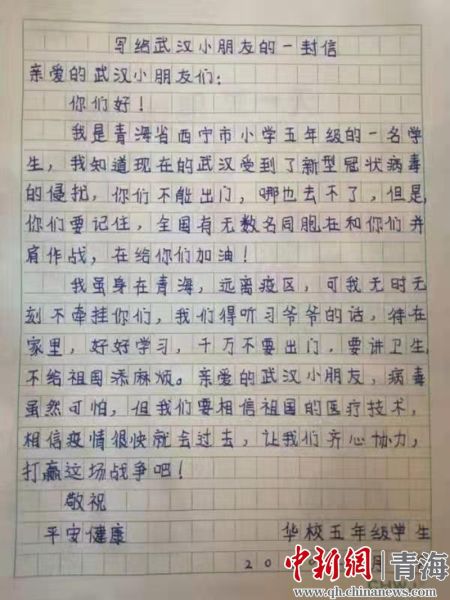 写给武汉小朋友的一封信
亲爱的武汉小朋友们：
你们好！
我是青海省西宁市小学五年级的一名学
生，我知道现在的武汉受到了新型冠状病毒
的侵扰，你们不能出门，哪也去不了，但是，
你们要记住，全国有无数名同胞在和你们并
肩作战，在给你们加油！
我虽身在青海，远离疫区，可我无时无
刻不牵挂你们，我们得听习爷爷的话，待在
家里，好好学习，千万不要出门，要讲卫生，
不给祖国添麻烦。亲爱的武汉小朋友，病毒
虽然可怕，但我们要相信祖国的医疗技术，
相信疫情很快就会过去，让我们齐心协力，
打赢这场战争吧！
敬祝
平安健康 华校五年级学生
20 月
中新网 青海
www.qh.chinanews.com